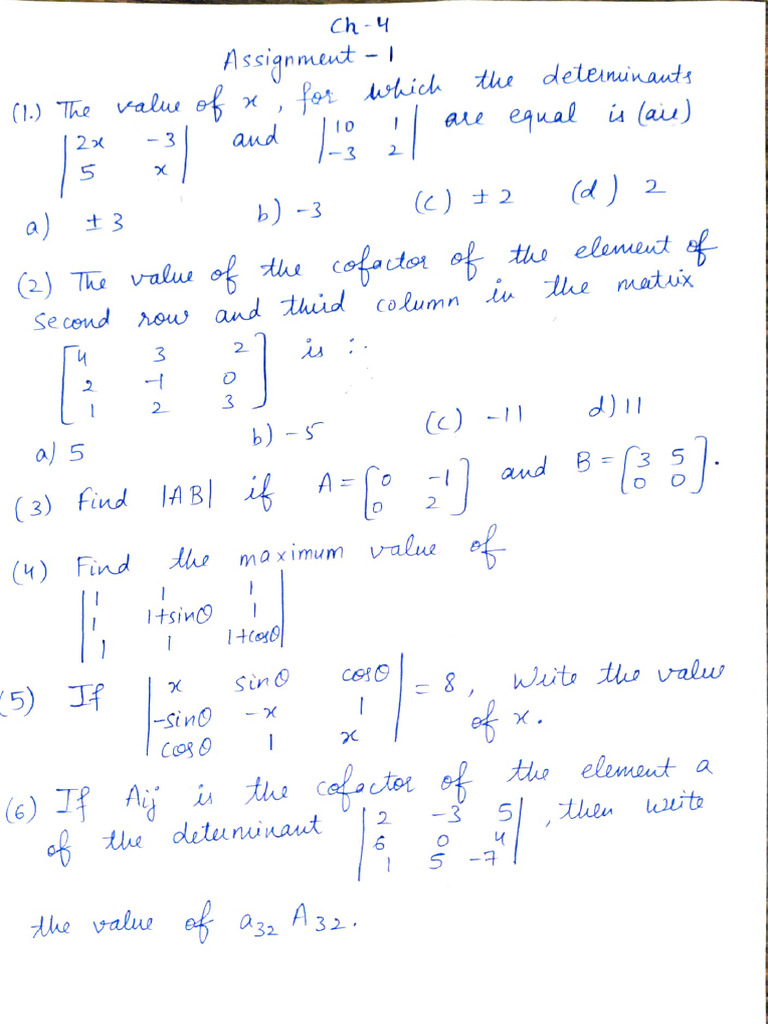 Ch-4
Assignment - 1
(1.) The value of x, for which the determinants
|2x -3| and |10 1| are equal is (are)
|5 x| |-3 2|
a) ±3 b) -3 (c) ±2 (d) 2
(2) The value of the cofactor of the element of
second row and third column in the matrix
[4 3 2] is :-
[2 -1 0]
[1 2 3]
a) 5 b) -5 (c) -11 d) 11
(3) Find |AB| if A = [0 -1] and B = [3 5].
[0 2] [0 0]
(4) Find the maximum value of
|1 1 1|
|1 1+sinθ 1|
|1 1 1+cosθ|
(5) If |x sinθ cosθ| = 8, Write the value
|-sinθ -x 1| of x.
|cosθ 1 x|
(6) If Aij is the cofactor of the element a
of the determinant |2 -3 5|, then write
|6 0 4|
|1 5 -7|
the value of a32 A32.